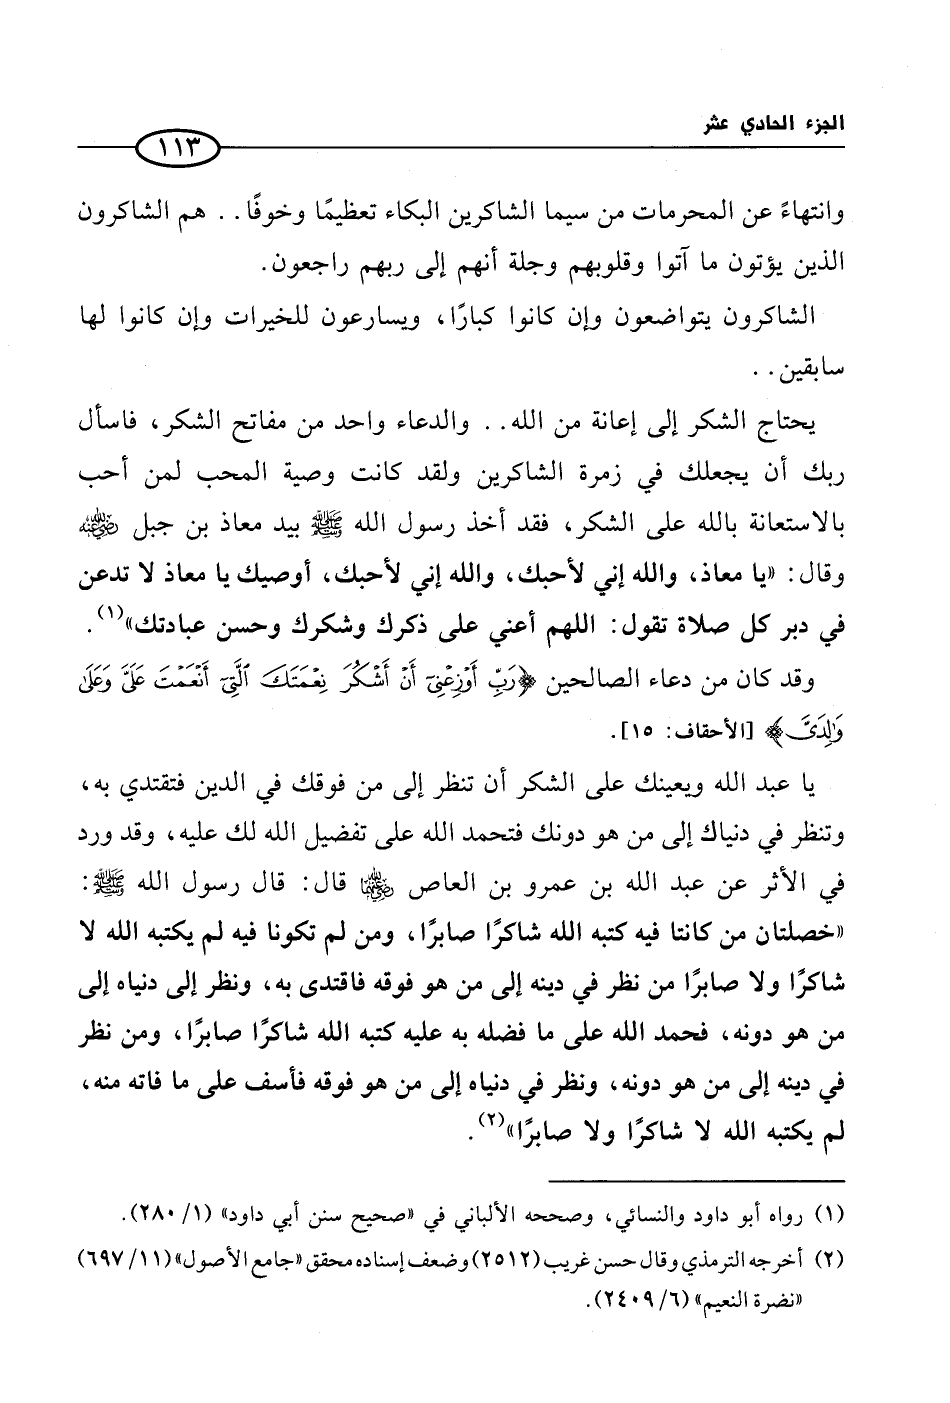 الجزء الحادي عشر
١١٣
وانتهاءً عن المحرمات من سيما الشاكرين البكاء تعظيمًا وخوفًا.. هم الشاكرون
الذين يؤتون ما آتوا وقلوبهم وجلة أنهم إلى ربهم راجعون.
الشاكرون يتواضعون وإن كانوا كبارًا، ويسارعون للخيرات وإن كانوا لها
سابقين..
يحتاج الشكر إلى إعانة من الله.. والدعاء واحد من مفاتح الشكر، فاسأل
ربك أن يجعلك في زمرة الشاكرين ولقد كانت وصية المحب لمن أحب
بالاستعانة بالله على الشكر، فقد أخذ رسول الله ﷺ بيد معاذ بن جبل رضي الله عنه
وقال: «يا معاذ، والله إني لأحبك، والله إني لأحبك، أوصيك يا معاذ لا تدعن
في دبر كل صلاة تقول: اللهم أعني على ذكرك وشكرك وحسن عبادتك»(١).
وقد كان من دعاء الصالحين ﴿رَبِّ أَوْزِعْنِىٓ أَنْ أَشْكُرَ نِعْمَتَكَ ٱلَّتِىٓ أَنْعَمْتَ عَلَىَّ وَعَلَىٰ
وَٰلِدَىَّ﴾ [الأحقاف: ١٥].
يا عبد الله ويعينك على الشكر أن تنظر إلى من فوقك في الدين فتقتدي به،
وتنظر في دنياك إلى من هو دونك فتحمد الله على تفضيل الله لك عليه، وقد ورد
في الأثر عن عبد الله بن عمرو بن العاص رضي الله عنهما قال: قال رسول الله ﷺ:
«خصلتان من كانتا فيه كتبه الله شاكرًا صابرًا، ومن لم تكونا فيه لم يكتبه الله لا
شاكرًا ولا صابرًا من نظر في دينه إلى من هو فوقه فاقتدى به، ونظر إلى دنياه إلى
من هو دونه، فحمد الله على ما فضله به عليه كتبه الله شاكرًا صابرًا، ومن نظر
في دينه إلى من هو دونه، ونظر في دنياه إلى من هو فوقه فأسف على ما فاته منه،
لم يكتبه الله لا شاكرًا ولا صابرًا»(٢).
(١) رواه أبو داود والنسائي، وصححه الألباني في «صحيح سنن أبي داود» (١/ ٢٨٠).
(٢) أخرجه الترمذي وقال حسن غريب (٢٥١٢) وضعف إسناده محقق «جامع الأصول» (١١/ ٦٩٧)
«نضرة النعيم» (٦/ ٢٤٠٩).